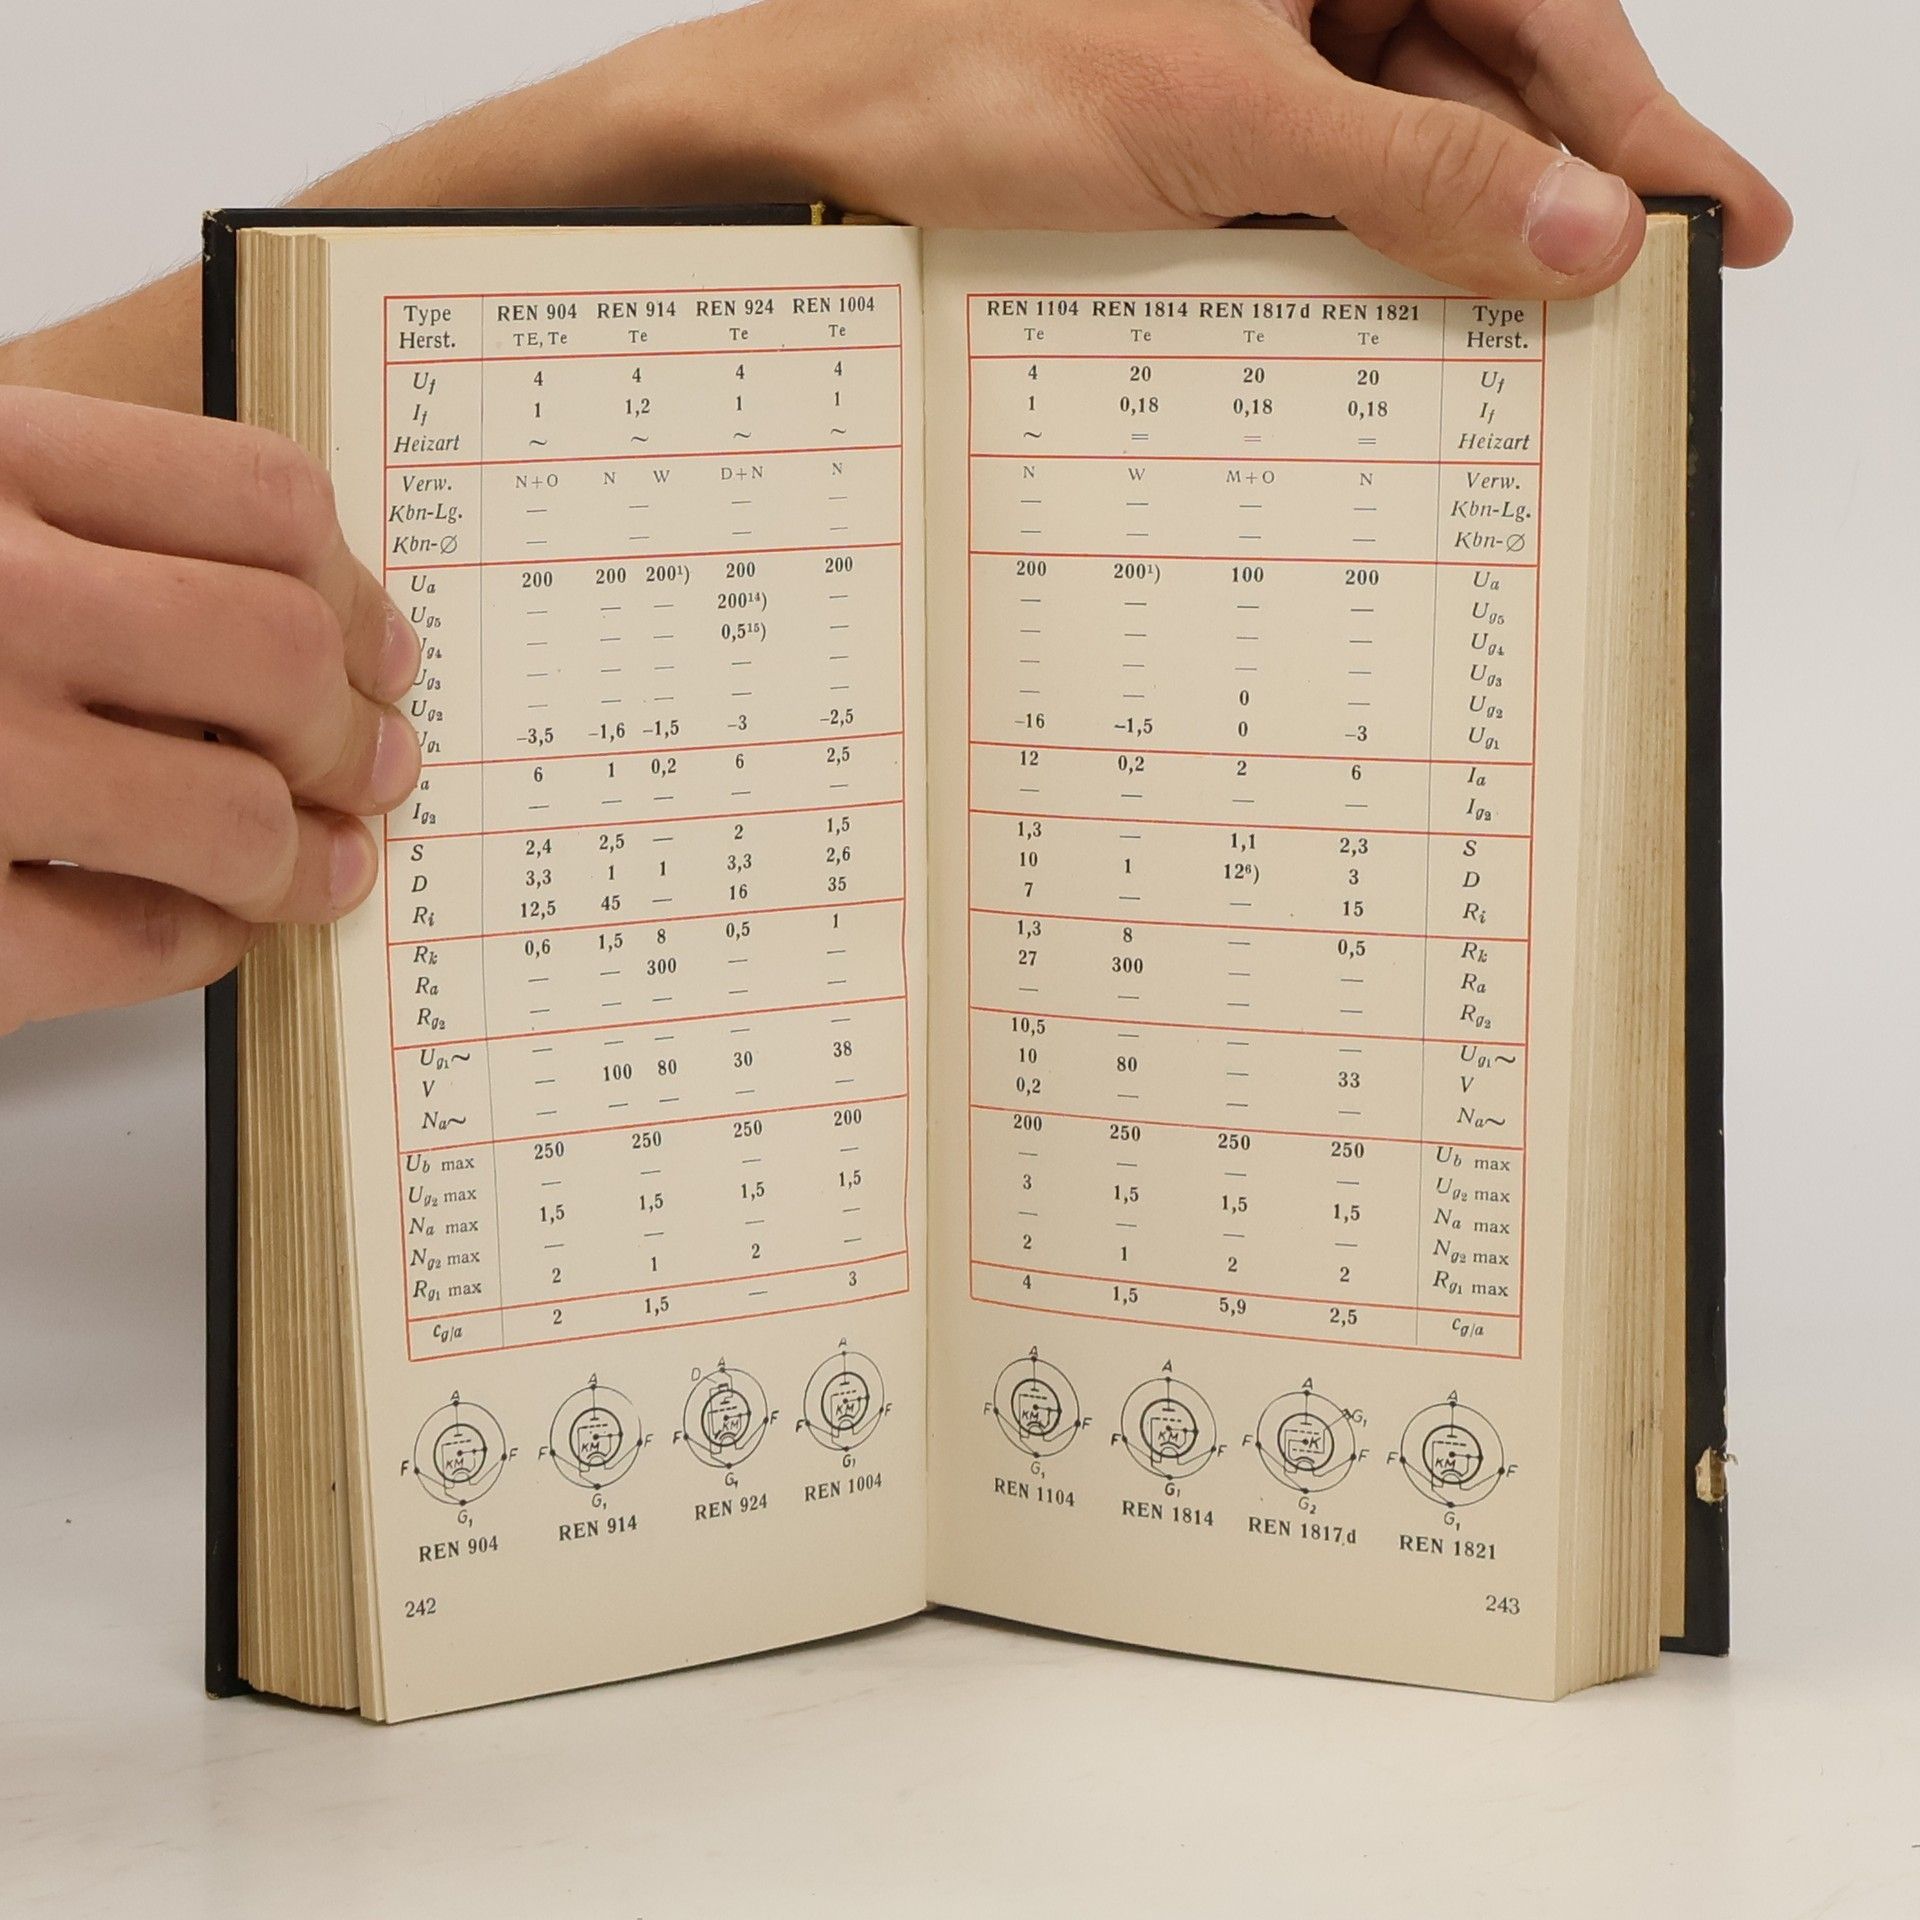 Type REN 904 REN 914 REN 924 REN 1004
Herst. TE, Te Te Te Te
Uf 4 4 4 4
If 1 1,2 1 1
Heizart ~ ~ ~ ~
Verw. N+O N W D+N N
Kbn-Lg. — — — —
Kbn-∅ — — — —
Ua 200 200 200¹) 200 200
Ug5 — — — 200¹⁴) —
Ug4 — — — 0,5¹⁵) —
Ug3 — — — — —
Ug2 — — — — —
Ug1 –3,5 –1,6 –1,5 –3 –2,5
a 6 1 0,2 6 2,5
Ig2 — — — — —
S 2,4 2,5 — 2 1,5
D 3,3 1 1 3,3 2,6
Ri 12,5 45 — 16 35
Rk 0,6 1,5 8 0,5 1
Ra — — 300 — —
Rg2 — — — — —
Ug1~ — — — — —
V — 100 80 30 38
Na~ — — — — —
Ub max 250 250 250 200
Ug2 max — — — —
Na max 1,5 1,5 1,5 1,5
Ng2 max — — — —
Rg1 max 2 1 2 3
cg/a 2 1,5 — 3
A A D A A
F KM F F KM F F KM F F KM F
G1 G1 G1 G1
REN 904 REN 914 REN 924 REN 1004
242
REN 1104 REN 1814 REN 1817d REN 1821 Type
Te Te Te Te Herst.
4 20 20 20 Uf
1 0,18 0,18 0,18 If
~ = = = Heizart
N W M+O N Verw.
— — — — Kbn-Lg.
— — — — Kbn-∅
200 200¹) 100 200 Ua
— — — — Ug5
— — — — Ug4
— — — — Ug3
— — 0 — Ug2
–16 –1,5 0 –3 Ug1
12 0,2 2 6 Ia
— — — — Ig2
1,3 — 1,1 2,3 S
10 1 12⁶) 3 D
7 — — 15 Ri
1,3 8 — 0,5 Rk
27 300 — — Ra
— — — — Rg2
10,5 — — — Ug1~
10 80 — 33 V
0,2 — — — Na~
200 250 250 250 Ub max
— — — — Ug2 max
3 1,5 1,5 1,5 Na max
— — — — Ng2 max
2 1 2 2 Rg1 max
4 1,5 5,9 2,5 cg/a
A A A G1 A
F KM F F KM F F K F F KM F
G1 G1 G2 G1
REN 1104 REN 1814 REN 1817d REN 1821
243